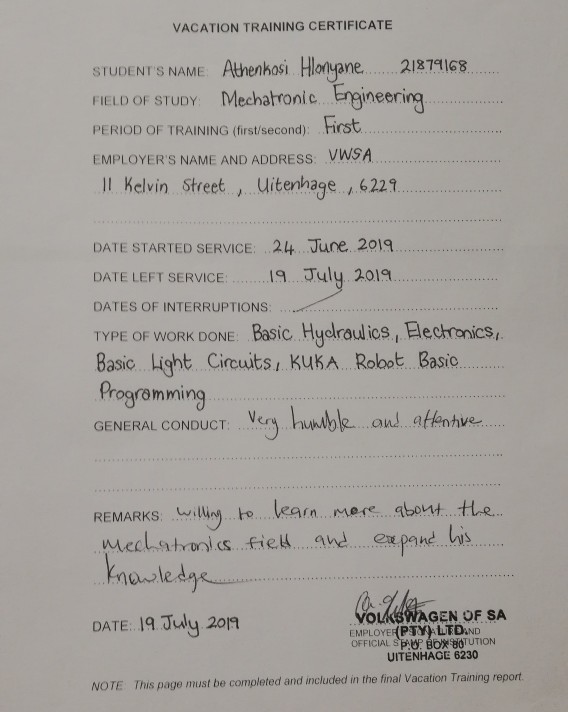 VACATION TRAINING CERTIFICATE
STUDENT'S NAME: Athenkosi Hlonyane 21879168
FIELD OF STUDY: Mechatronic Engineering
PERIOD OF TRAINING (first/second): First
EMPLOYER'S NAME AND ADDRESS: VWSA
11 Kelvin Street, Uitenhage, 6229
DATE STARTED SERVICE: 24 June 2019
DATE LEFT SERVICE: 19 July 2019
DATES OF INTERRUPTIONS:
TYPE OF WORK DONE: Basic Hydraulics, Electronics,
Basic Light Circuits, KUKA Robot Basic
Programming
GENERAL CONDUCT: Very humble and attentive
REMARKS: willing to learn more about the
mechatronics field and expand his
knowledge
VOLKSWAGEN OF SA
DATE: 19 July 2019
EMPLOYER
(PTY) LTD.
OFFICIAL
P.O. BOX 80
UITENHAGE 6230
NOTE This page must be completed and included in the final Vacation Training report.